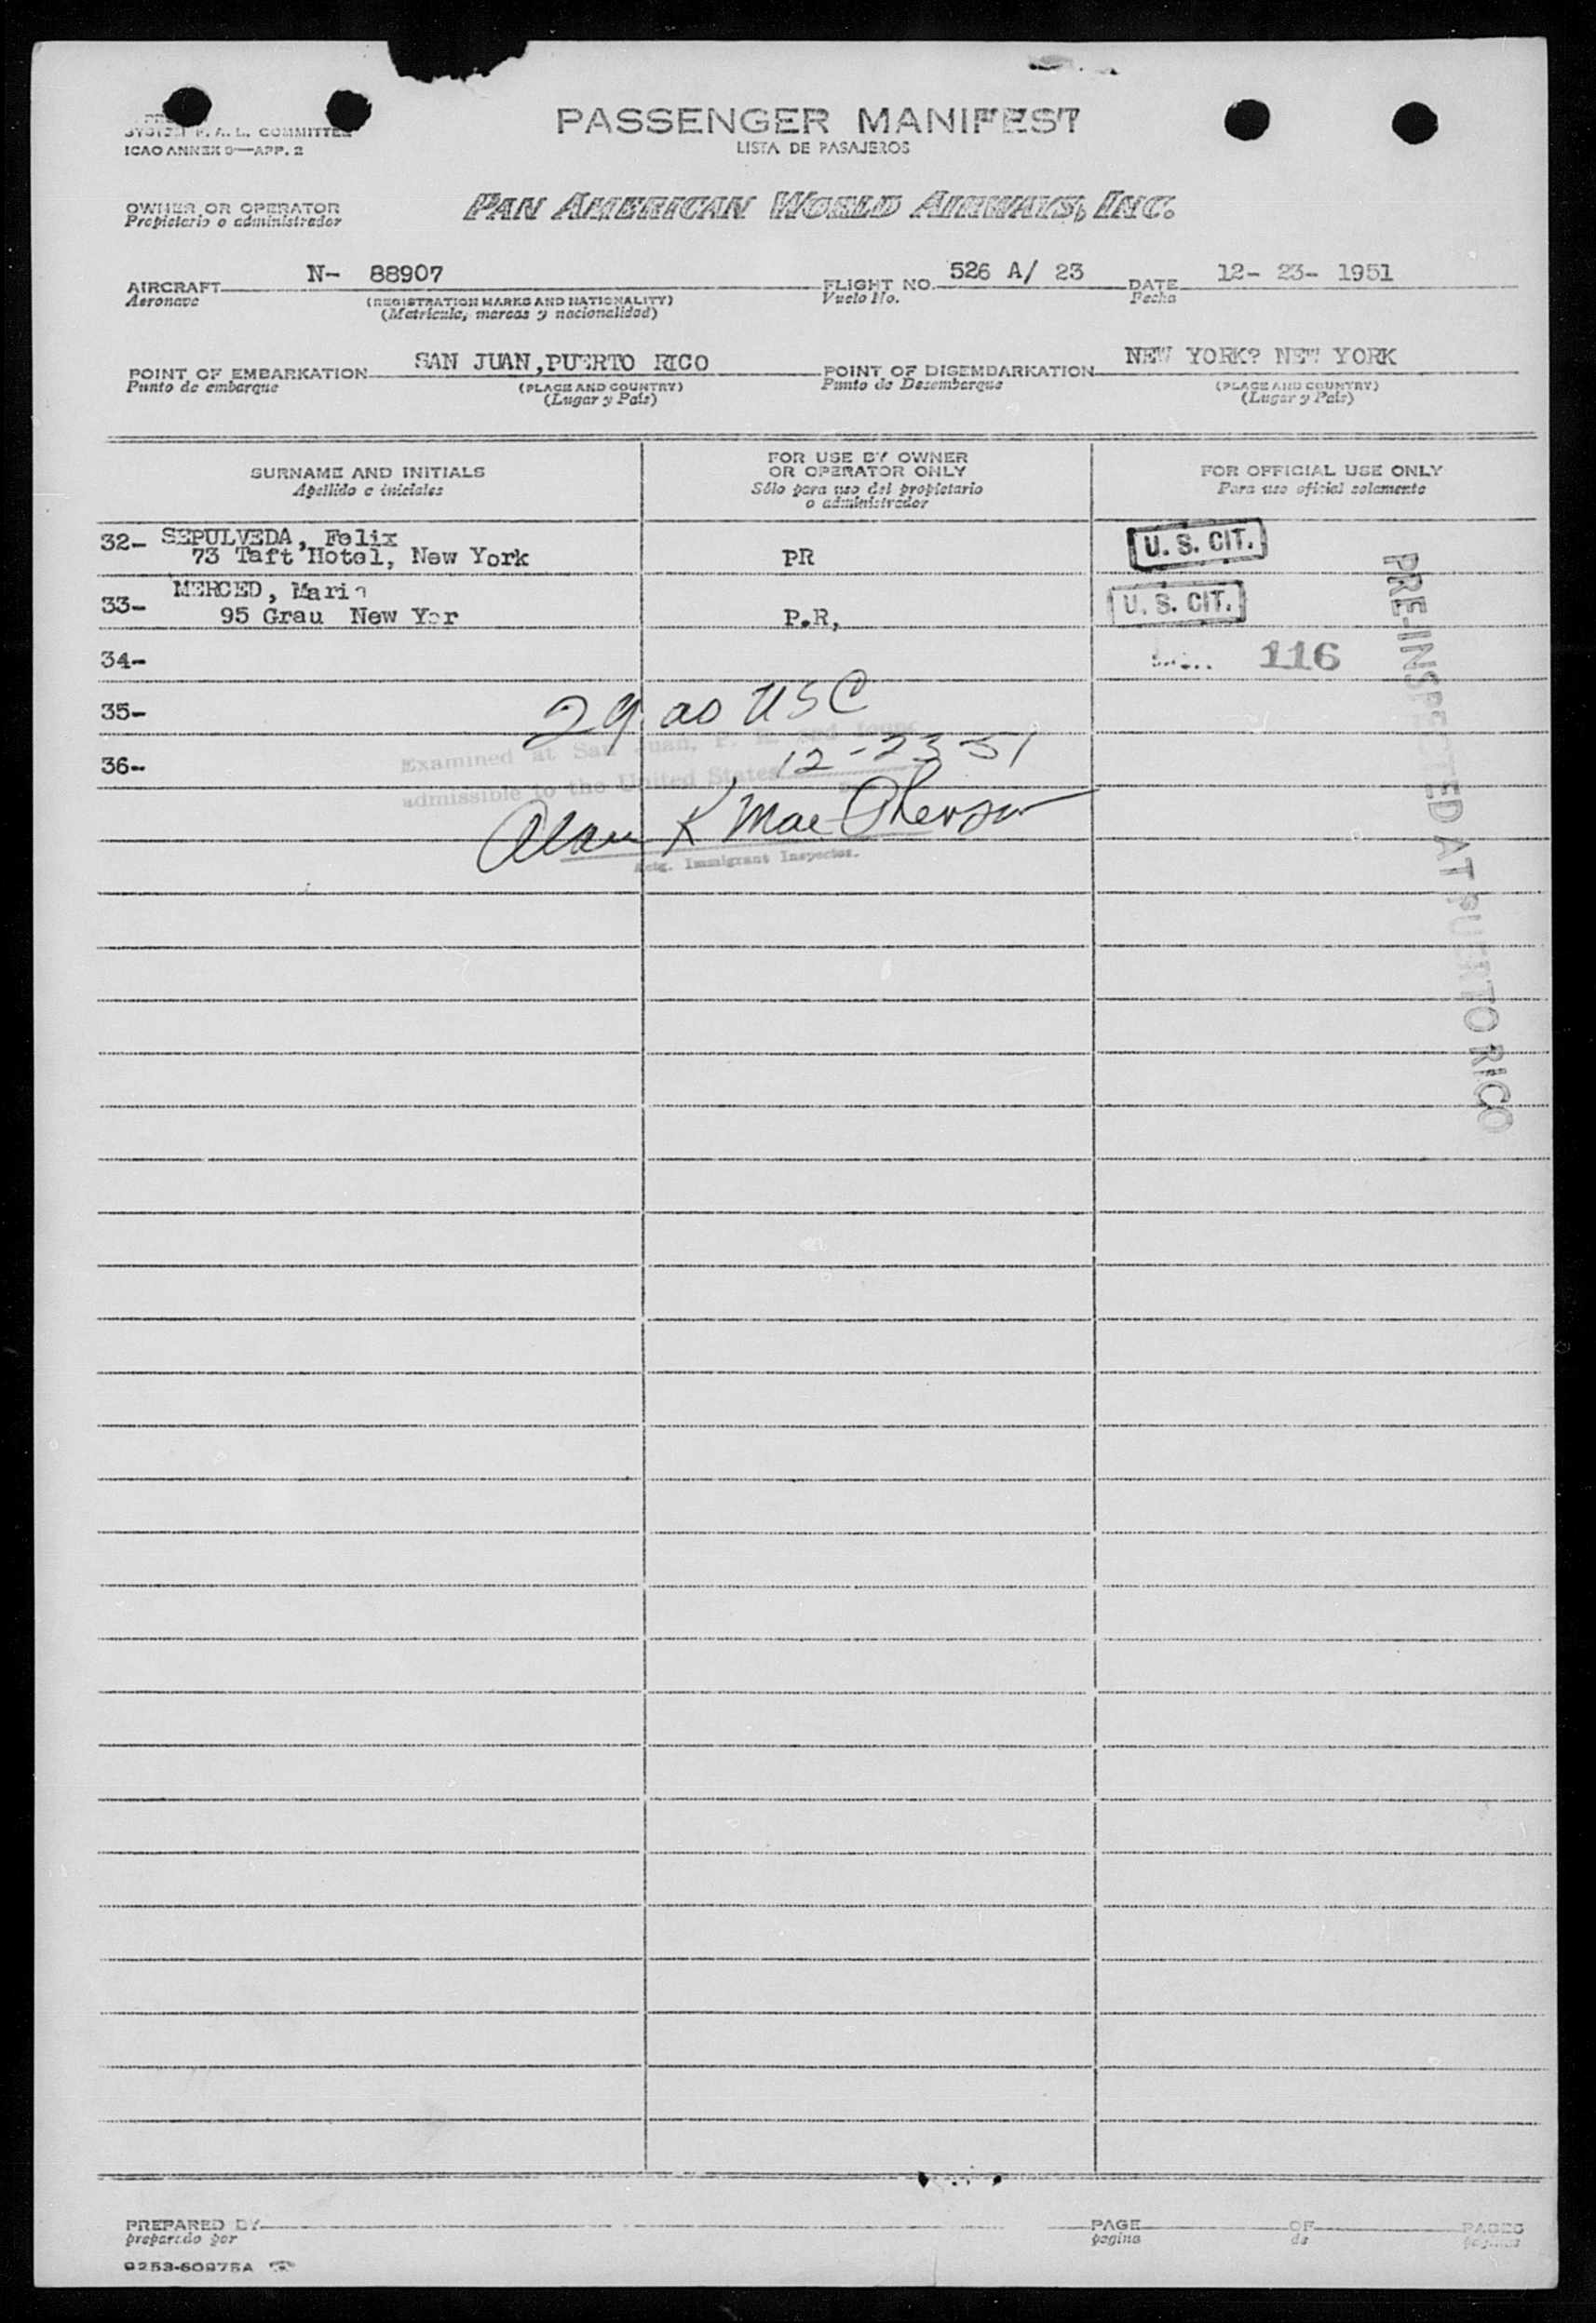 PASSENGER MANIFEST
LISTA DE PASAJEROS
F. A. L. COMMITTEE
ICAO ANNEX 9—APP. 2
OWNER OR OPERATOR
Propietario o administrador
PAN AMERICAN WORLD AIRWAYS, INC.
AIRCRAFT N- 88907
Aeronave
(REGISTRATION MARKS AND NATIONALITY)
(Matrícula, marcas y nacionalidad)
FLIGHT NO. 526 A/ 23
Vuelo No.
DATE 12- 23- 1951
Fecha
POINT OF EMBARKATION SAN JUAN,PUERTO RICO
Punto de embarque
(PLACE AND COUNTRY)
(Lugar y País)
POINT OF DISEMBARKATION NEW YORK? NEW YORK
Punto de Desembarque
(PLACE AND COUNTRY)
(Lugar y País)
SURNAME AND INITIALS
Apellido e iniciales
FOR USE BY OWNER
OR OPERATOR ONLY
Sólo para uso del propietario
o administrador
FOR OFFICIAL USE ONLY
Para uso oficial solamente
32- SEPULVEDA, Felix
73 Taft Hotel, New York PR U. S. CIT.
33- MERCED, Maria
95 Grau New Yor P.R, U. S. CIT.
34- 116
35- 29 as USC
Examined at San Juan, P. R. and found
36- 12-23-51
admissible to the United States
Alan K MacPherson
Actg. Immigrant Inspector.
PRE-INSPECTED AT PUERTO RICO
PREPARED BY
preparado por
PAGE
pagina
OF
de
PAGES
paginas
9253-60975A